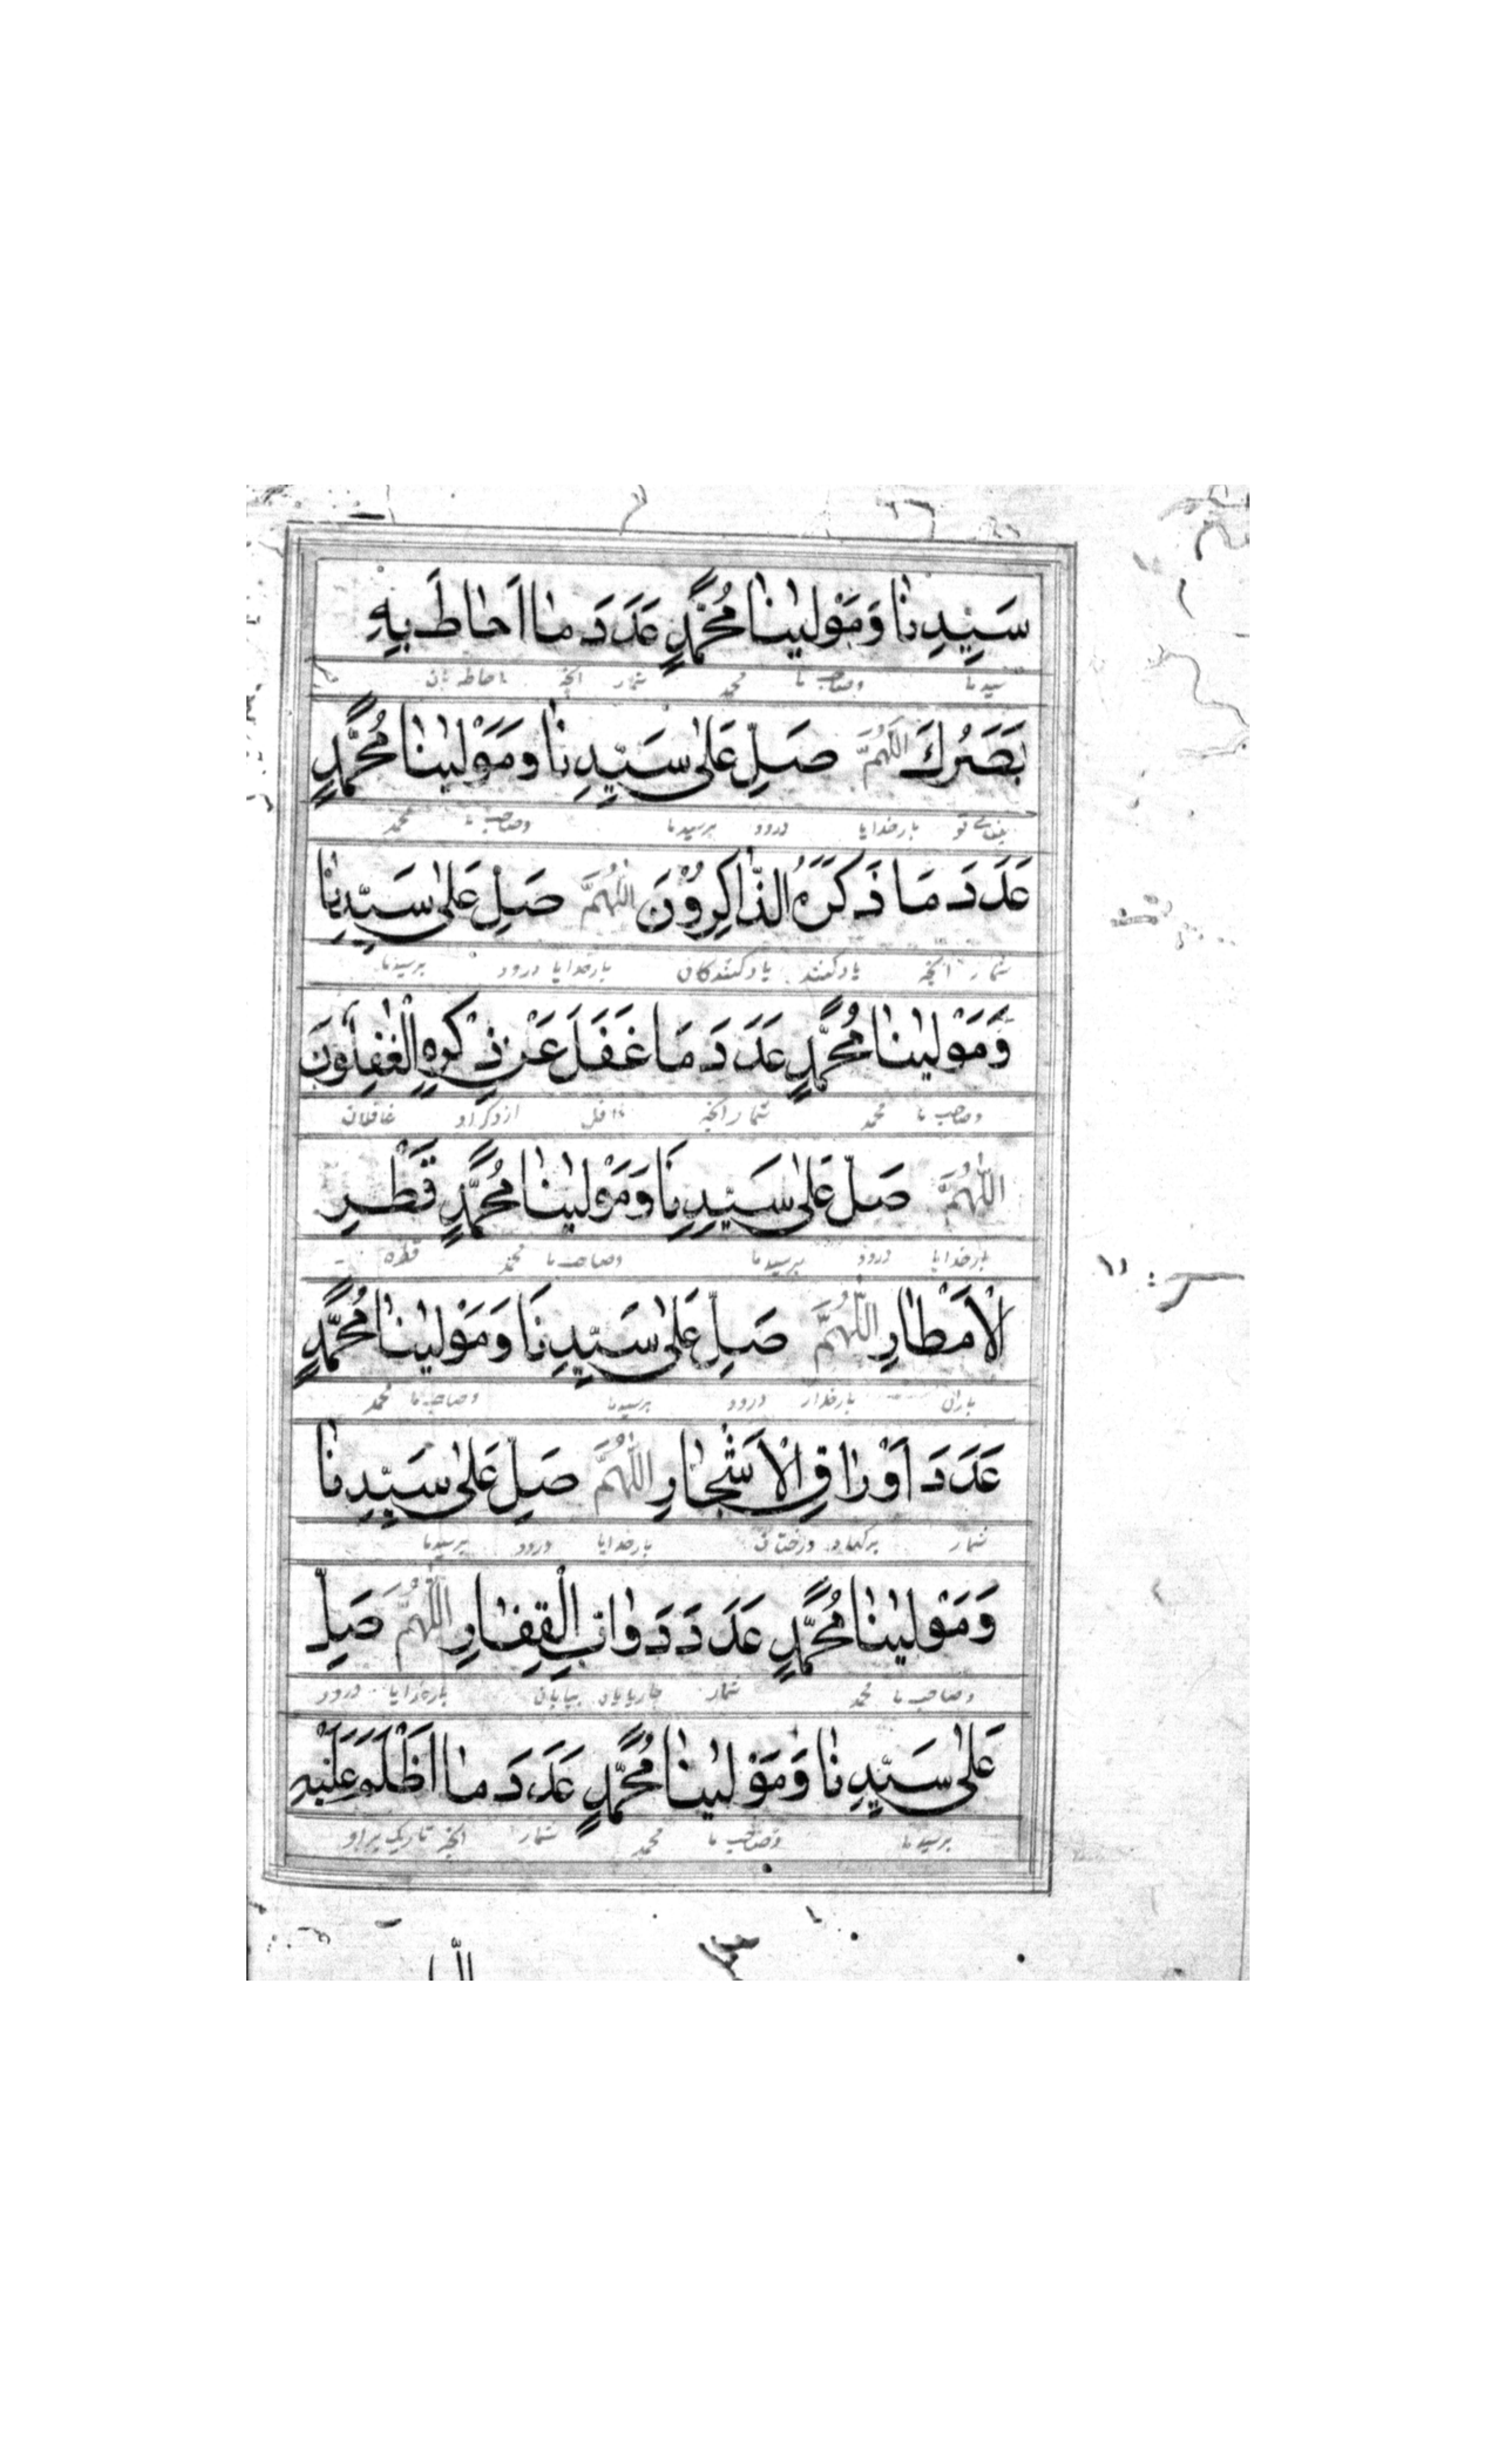 سَيِّدِنَا وَمَوْلٰينَا مُحَمَّدٍ عَدَدَ مَا اَحَاطَ بِهِ
سیدنا وصاحب ما محمد شمار آنچه احاطه بآن
بَصَرُكَ اَللّٰهُمَّ صَلِّ عَلٰى سَيِّدِنَا وَمَوْلٰينَا مُحَمَّدٍ
تو بارخدایا درود برسیدنا وصاحب ما محمد
عَدَدَ مَا ذَكَرَهُ الذَّاكِرُوْنَ اَللّٰهُمَّ صَلِّ عَلٰى سَيِّدِنَا
شمار آنچه یادکنند یادکنندکان بارخدایا درود برسیدنا
وَمَوْلٰينَا مُحَمَّدٍ عَدَدَ مَا غَفَلَ عَنْ ذِكْرِهِ الْغٰفِلُوْنَ
وصاحب ما محمد شمار آنچه غافل ازذکر او غافلان
اَللّٰهُمَّ صَلِّ عَلٰى سَيِّدِنَا وَمَوْلٰينَا مُحَمَّدٍ قَطْرِ
بارخدایا درود برسیدنا وصاحب ما محمد قطره
الْاَمْطَارِ اَللّٰهُمَّ صَلِّ عَلٰى سَيِّدِنَا وَمَوْلٰينَا مُحَمَّدٍ
باران بارخدایا درود برسیدنا وصاحب ما محمد
عَدَدَ اَوْرَاقِ الْاَشْجَارِ اَللّٰهُمَّ صَلِّ عَلٰى سَيِّدِنَا
شمار برکهاء درختان بارخدایا درود برسیدنا
وَمَوْلٰينَا مُحَمَّدٍ عَدَدَ دَوَابِّ الْقِفَارِ اَللّٰهُمَّ صَلِّ
وصاحب ما محمد شمار چارپایان بیابان بارخدایا درود
عَلٰى سَيِّدِنَا وَمَوْلٰينَا مُحَمَّدٍ عَدَدَ مَا اَظْلَمَ عَلَيْهِ
برسیدنا وصاحب ما محمد شمار آنچه تاریک براو